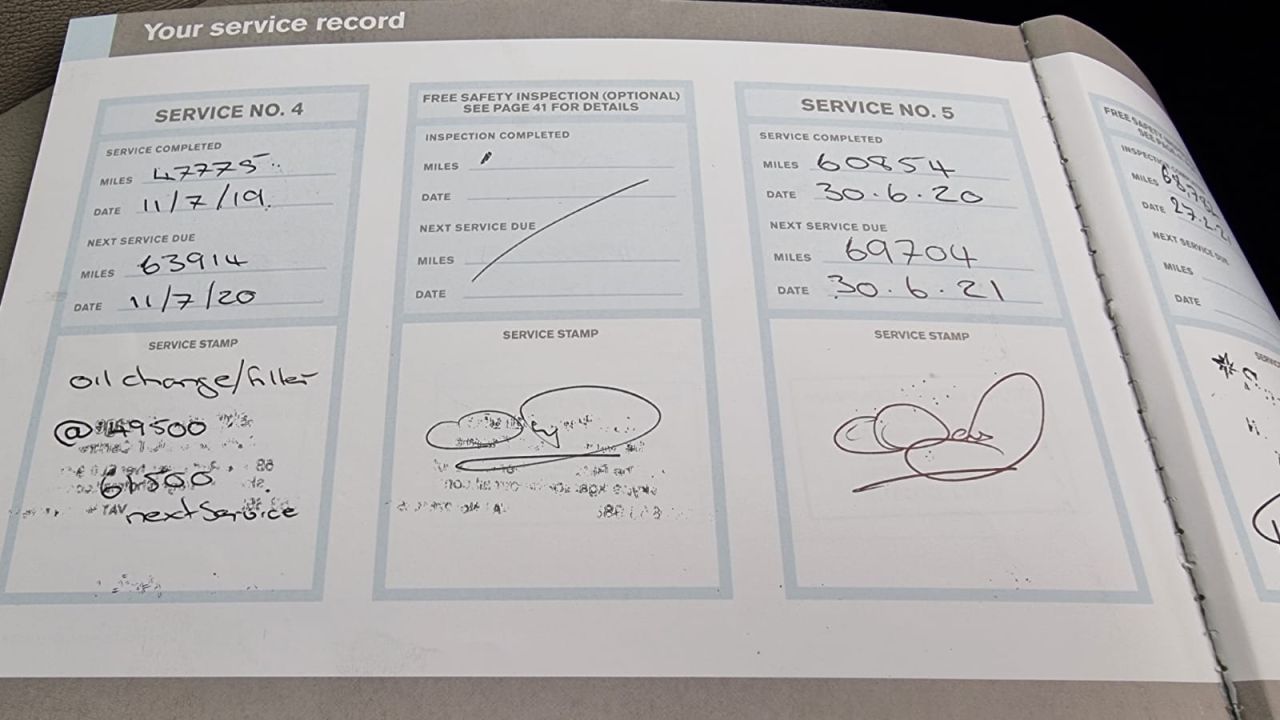 Your service record
SERVICE NO. 4
SERVICE COMPLETED
MILES 47775
DATE 11/7/19
NEXT SERVICE DUE
MILES 63914
DATE 11/7/20
SERVICE STAMP
oil change/filter
@ 49500
61500
next Service
FREE SAFETY INSPECTION (OPTIONAL)
SEE PAGE 41 FOR DETAILS
INSPECTION COMPLETED
MILES
DATE
NEXT SERVICE DUE
MILES
DATE
SERVICE STAMP
SERVICE NO. 5
SERVICE COMPLETED
MILES 60854
DATE 30.6.20
NEXT SERVICE DUE
MILES 69704
DATE 30.6.21
SERVICE STAMP
FREE SAFETY
SEE
MILES
DATE
NEXT SERVICE DUE
MILES
DATE